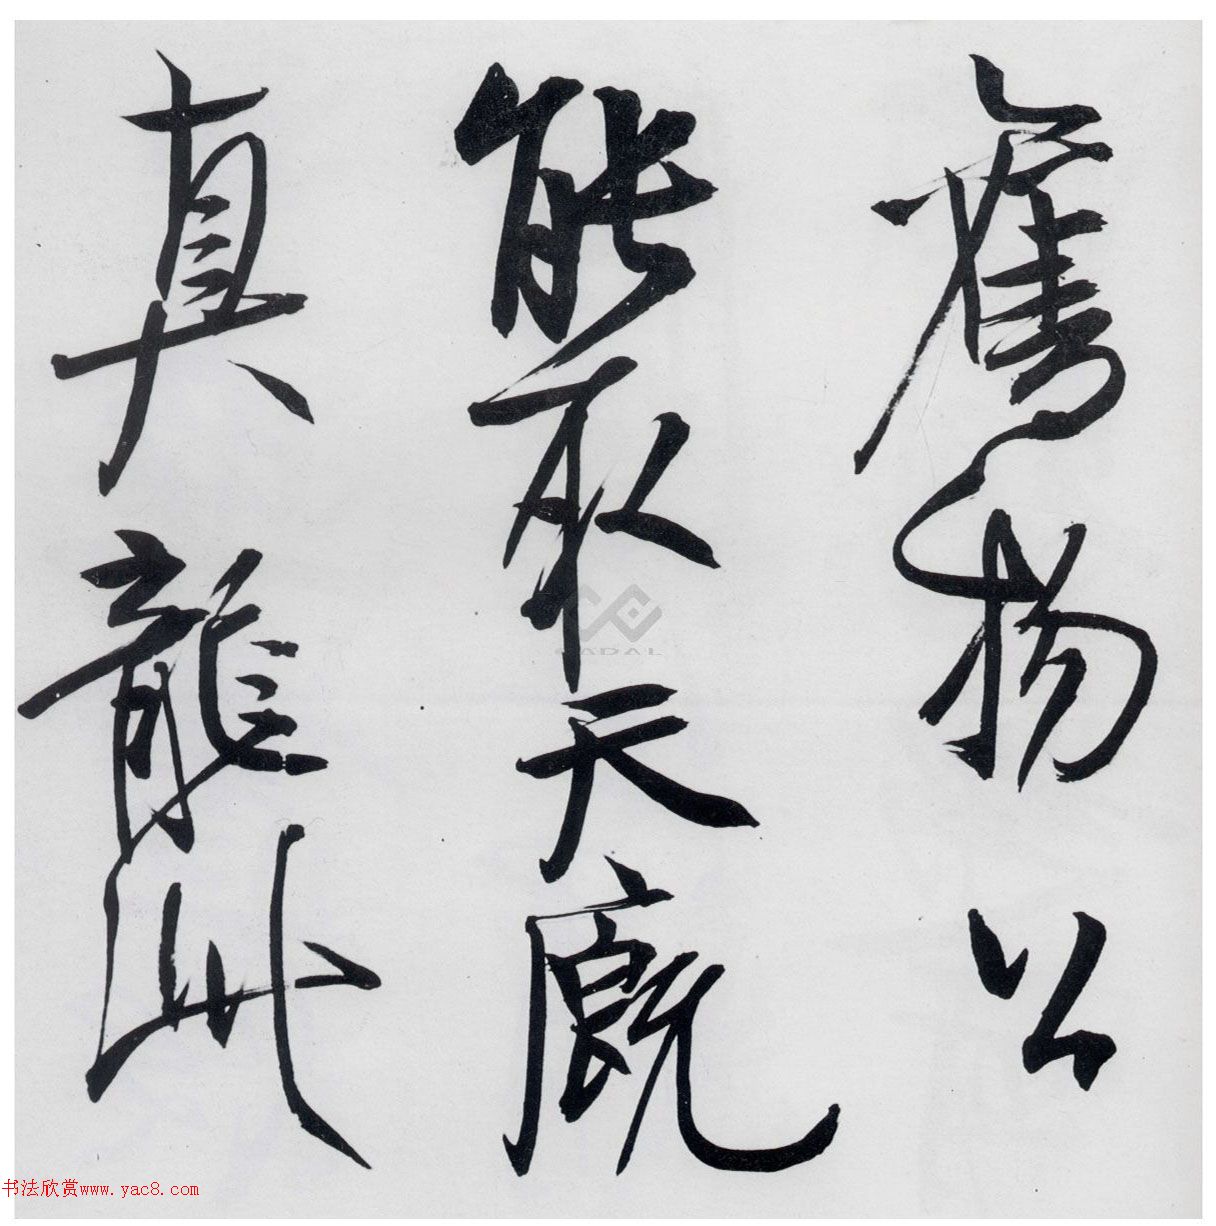 舊物公
能取天廄
真龍此
CADAL
书法欣赏www.yac8.com